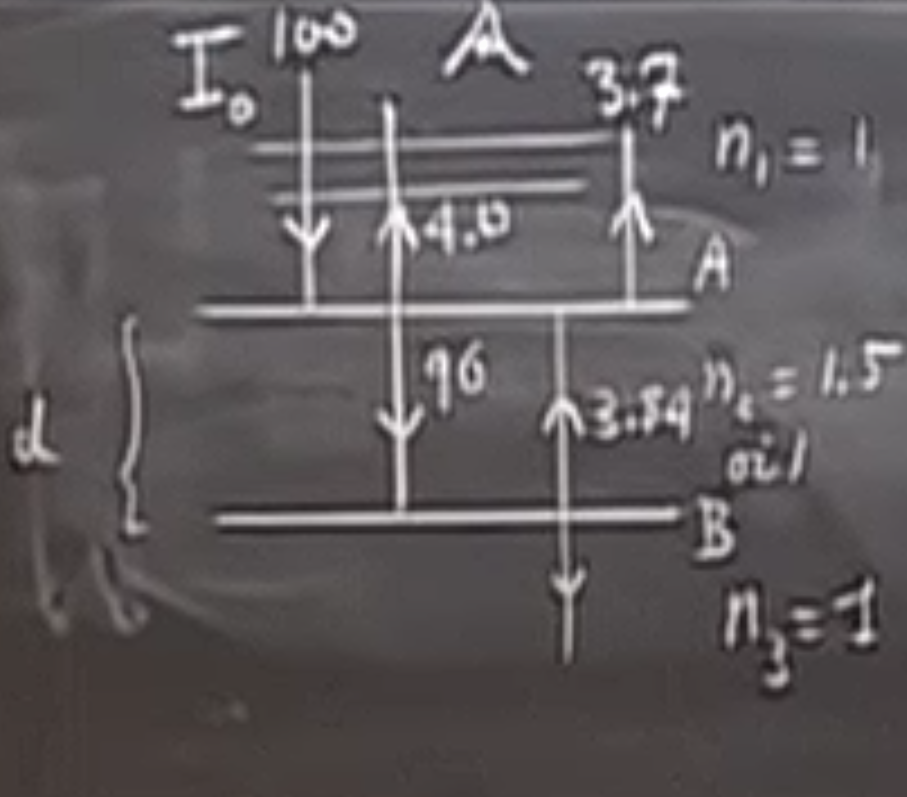 I₀ 100 A 3.7
n₁ = 1
4.0
A
96 3.84 n₂ = 1.5
d oil
B
n₃ = 1